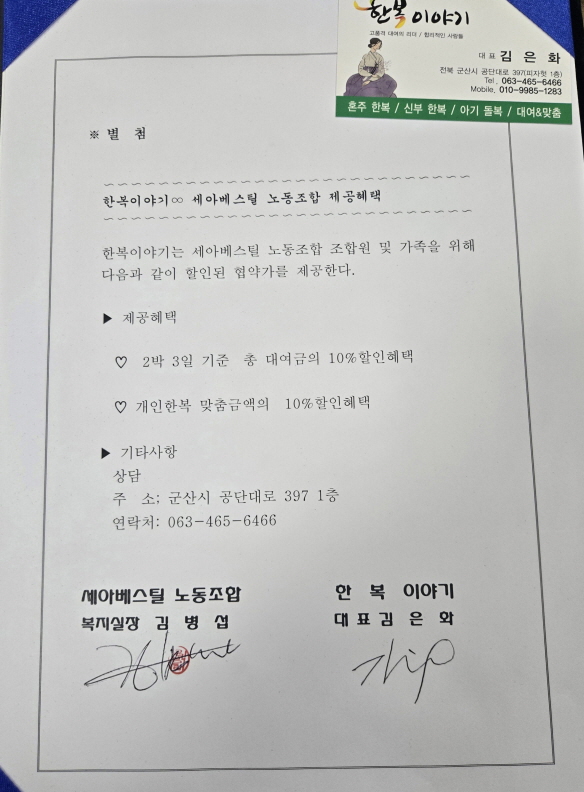 한복이야기
고품격 대여의 리더 / 합리적인 사람들
대표 김은화
전북 군산시 공단대로 397(피자헛 1층)
Tel. 063-465-6466
Mobile. 010-9985-1283
혼주 한복 / 신부 한복 / 아기 돌복 / 대여&맞춤
※ 별 첨
한복이야기∞ 세아베스틸 노동조합 제공혜택
한복이야기는 세아베스틸 노동조합 조합원 및 가족을 위해
다음과 같이 할인된 협약가를 제공한다.
▶ 제공혜택
♡ 2박 3일 기준 총 대여금의 10%할인혜택
♡ 개인한복 맞춤금액의 10%할인혜택
▶ 기타사항
상담
주 소; 군산시 공단대로 397 1층
연락처: 063-465-6466
세아베스틸 노동조합 한 복 이야기
복지실장 김 병 섭 대 표 김 은 화